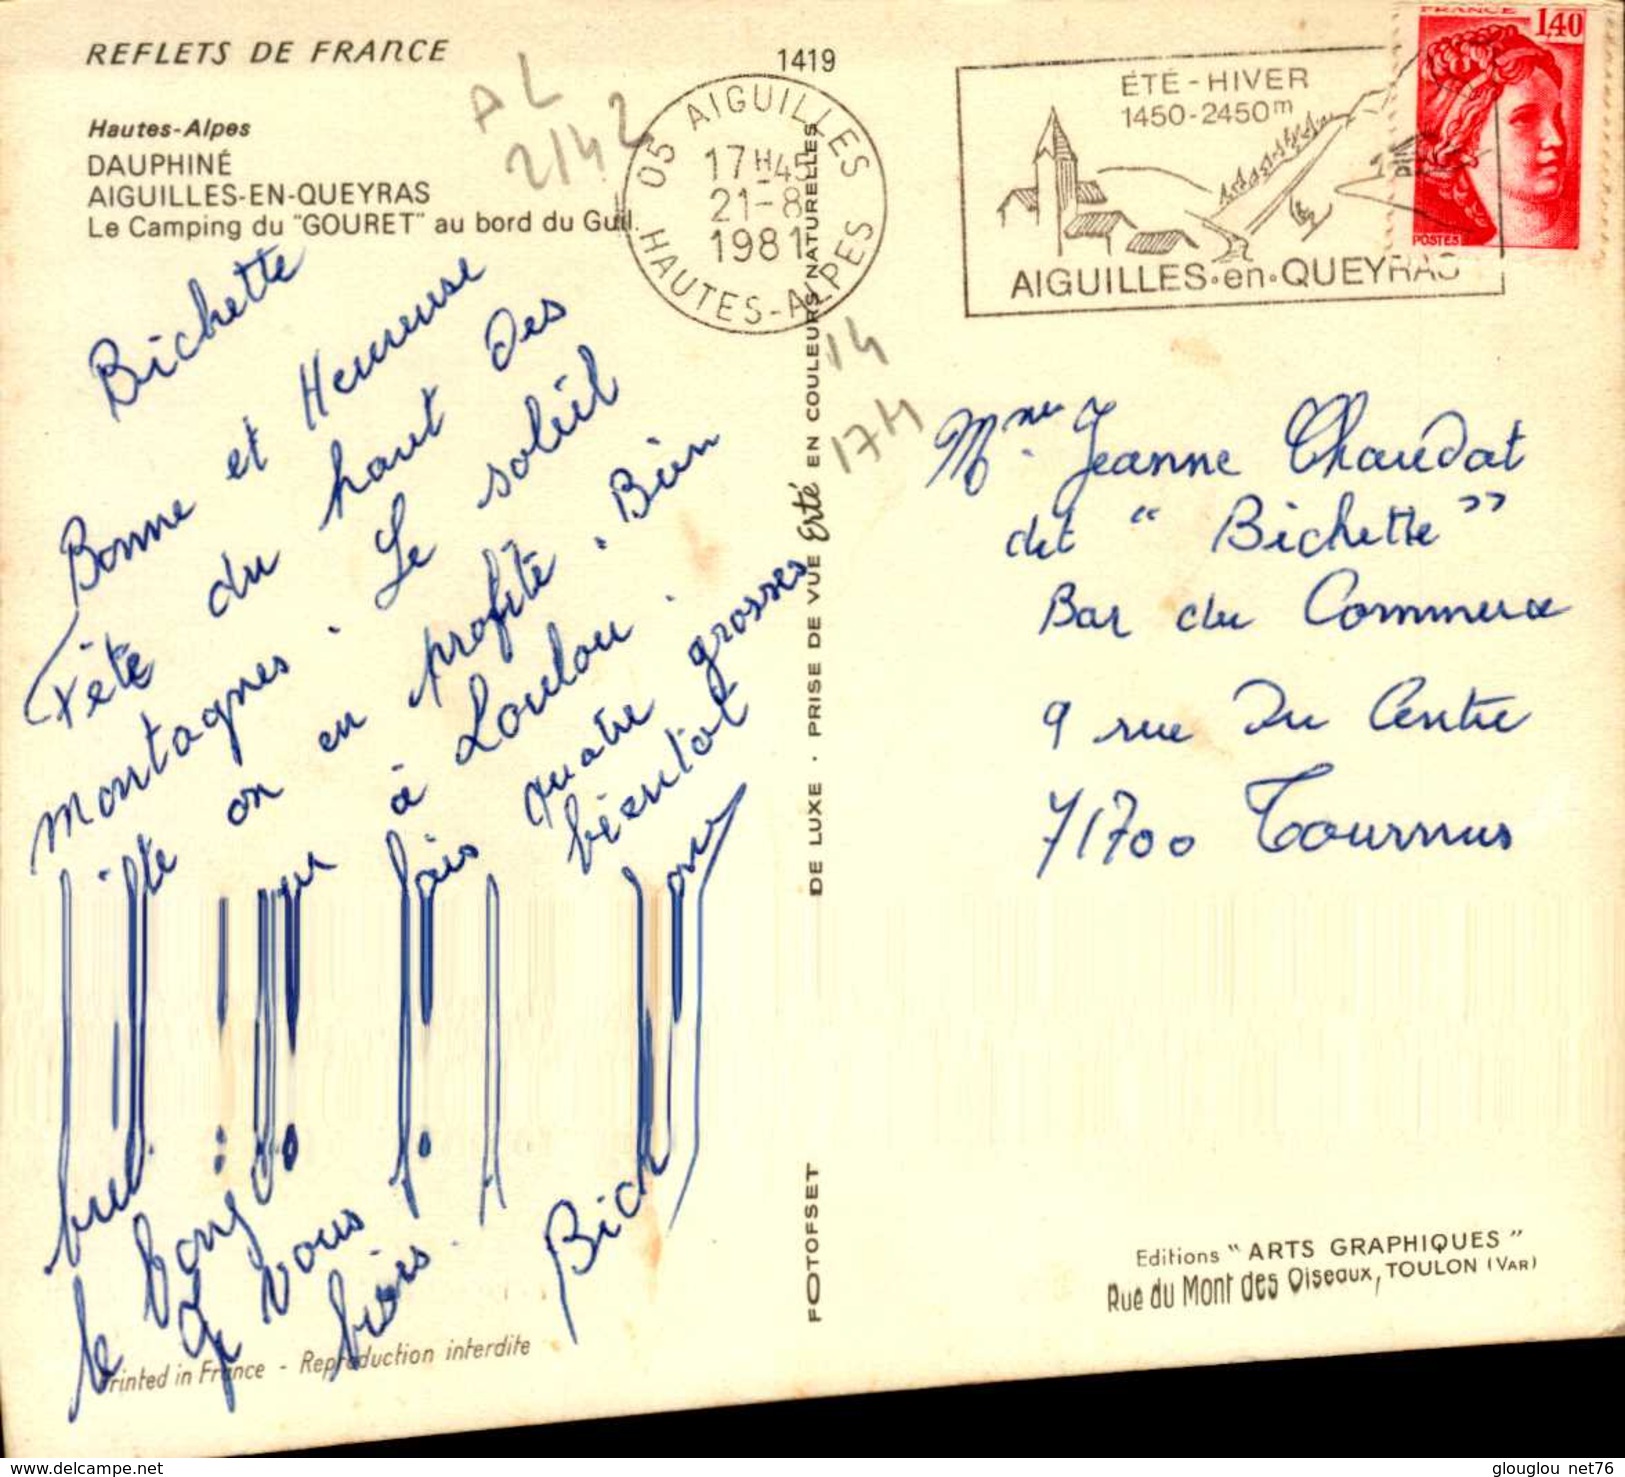 REFLETS DE FRANCE
1419
Hautes-Alpes
DAUPHINÉ
AIGUILLES-EN-QUEYRAS
Le Camping du "GOURET" au bord du Guil.
AL
2142
05 AIGUILLES
17H-45
21-8
1981
HAUTES-ALPES
ÉTÉ - HIVER
1450-2450m
AIGUILLES·en·QUEYRAS
FRANCE
1,40
POSTES
14
17H
Bichette
Bonne et Heureuse
Fête du haut des
montagnes. Le soleil
on en profite. Bien
à Loulou.
fais quatre grosses
bientôt
le bonj
vous f
bises.
Bich
DE LUXE · PRISE DE VUE Erté EN COULEURS NATURELLES
FOTOFSET
Mme Jeanne Chaudat
dit "Bichette"
Bar du Commerce
9 rue Du Centre
71700 Tournus
Editions "ARTS GRAPHIQUES"
Rue du Mont des Oiseaux, TOULON (VAR)
Printed in France - Reproduction interdite
www.delcampe.net
glouglou net76